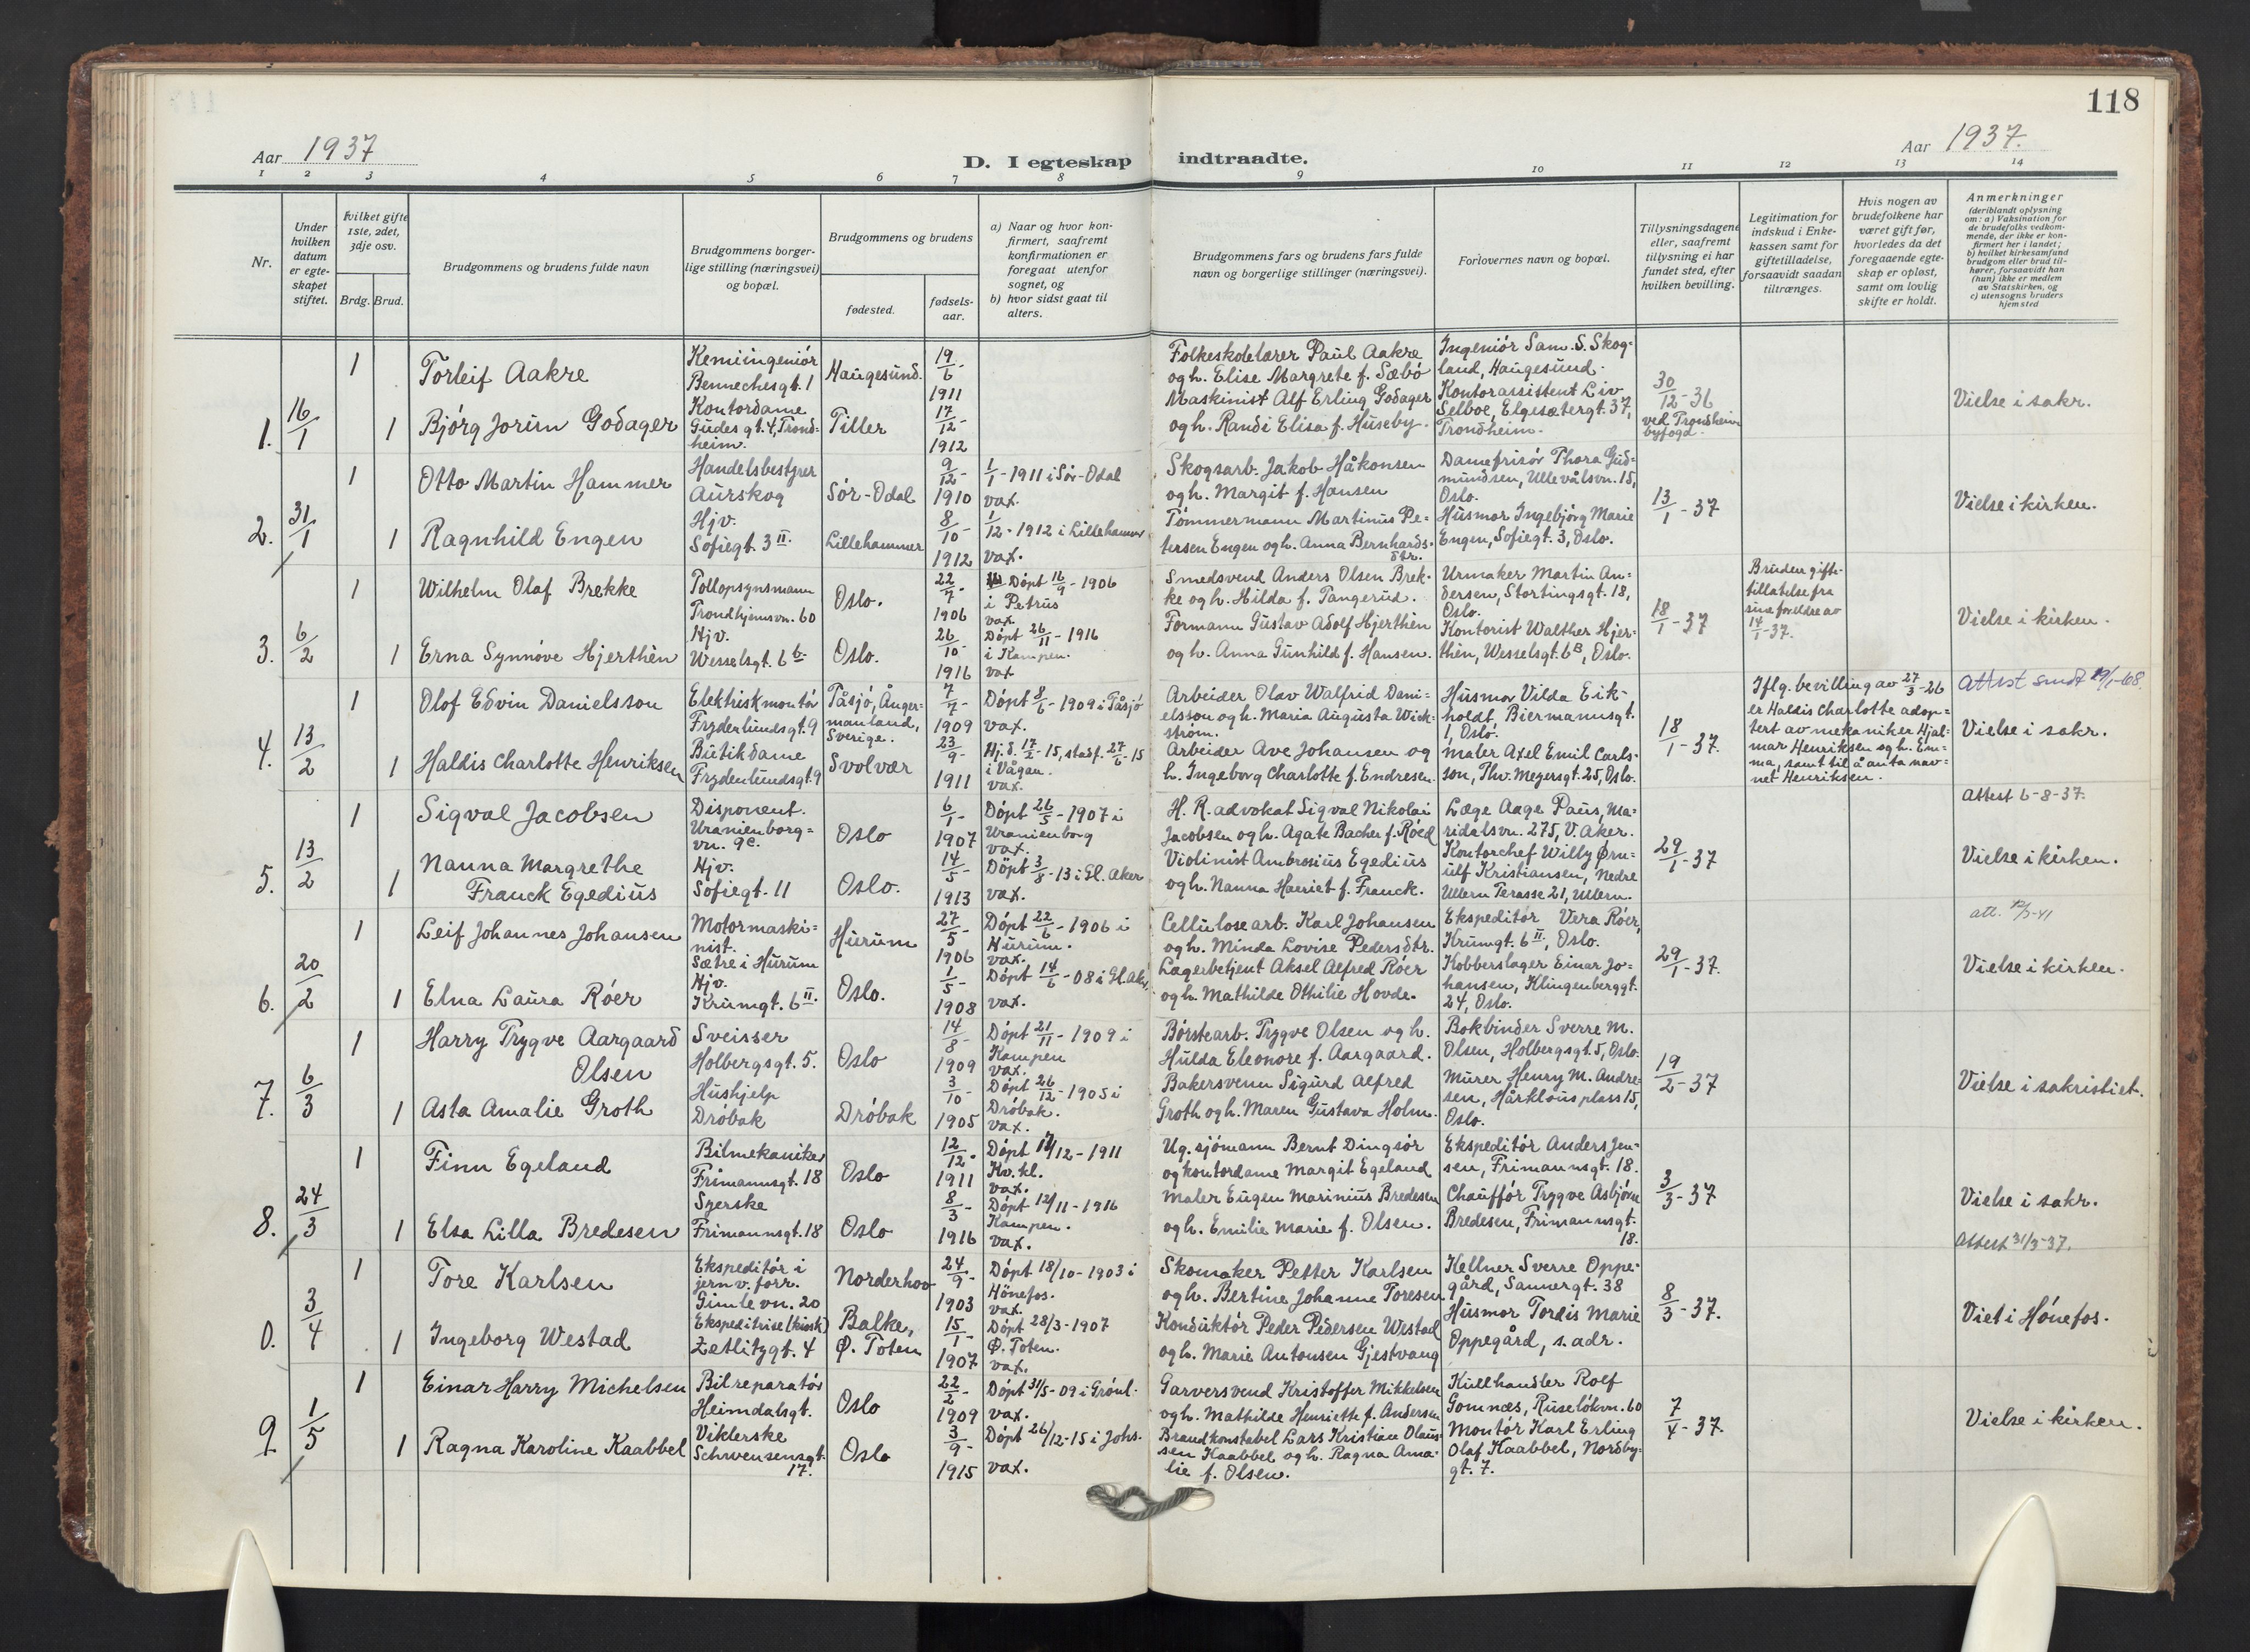 118
Aar 1937
Aar 1937.
D. I egteskap indtraadte.
1 2 3 4 5 6 7 8 9 10 11 12 13 14
Nr.
Under hvilken datum er egteskapet stiftet.
hvilket gifte 1ste, 2det, 3dje osv.
Brdg. Brud.
Brudgommens og brudens fulde navn
Brudgommens borgerlige stilling (næringsvei) og bopæl.
Brudgommens og brudens
fødested.
fødselsaar.
a) Naar og hvor konfirmert, saafremt konfirmationen er foregaat utenfor sognet, og
b) hvor sidst gaat til alters.
Brudgommens fars og brudens fars fulde navn og borgerlige stillinger (næringsvei).
Forlovernes navn og bopæl.
Tillysningsdagene eller, saafremt tillysning ei har fundet sted, efter hvilken bevilling.
Legitimation for indskud i Enkekassen samt for giftetilladelse, forsaavidt saadan tiltrænges.
Hvis nogen av brudefolkene har været gift før, hvorledes da det foregaaende egteskap er opløst, samt om lovlig skifte er holdt.
Anmerkninger
(deriblandt oplysning om: a) Vaksination for de brudefolks vedkommende, der ikke er konfirmert her i landet;
b) hvilket kirkesamfund brudgom eller brud tilhører, forsaavidt han (hun) ikke er medlem av Statskirken, og
c) utensogns bruders hjemsted
1. 16/1
1 Torleif Aakre
Kemiingeniör Bennechesgt. 1
Haugesund.
19/6 - 1911
Folkeskolelærer Paul Aakre og h. Elise Margrete f. Sæbö
Ingeniör Sam. S. Skogland, Haugesund.
1 Bjórg Jorun Godager
Kontordame Gudes gt. 4, Trondheim.
Tiller
17/12 - 1912
Maskinist Alf Erling Godager og h. Randi Elisa f. Huseby.
Kontorassistent Liv Selboe, Elgesætergt. 37, Trondheim.
30/12 - 36 ved Trondheim byfogd.
Vielse i sakr.
2. 31/1
1 Otto Martin Hammer
Handelsbestyrer Aurskog
Sór-Odal
9/12 - 1910
1/1 - 1911 i Sór-Odal vax.
Skogsarb. Jakob Håkonsen og h. Margit f. Hansen
Damefrisór Thora Gudmundsen, Ullevålsvn. 15, Oslo.
1 Ragnhild Engen
Hjv. Sofiegt. 3 II.
Lillehammer
8/10 - 1912
1/12 - 1912 i Lillehammer vax.
Tómmermann Martinus Petersen Engen og h. Anna Bernhardsdtr.
Husmor Ingebjórg Marie Engen, Sofiegt. 3, Oslo.
13/1 - 37
Vielse i kirken.
3. 6/2
1 Wilhelm Olaf Brekke
Tollopsynsmann Trondhjemsvn. 60
Oslo.
22/7 - 1906
Döpt 16/9 - 1906 i Petrus vax
Smedsvend Anders Olsen Brekke og h. Hilda f. Tangerud.
Urmaker Martin Andersen, Stortingsgt. 18, Oslo.
1 Erna Synnóve Hjerthèn
Hjv. Wesselsgt. 6 b.
Oslo.
26/10 - 1916
Döpt 26/11 - 1916 i Kampen. vax
Formann Gustav Adolf Hjerthèn og h. Anna Gunhild f. Hansen.
Kontorist Walther Hjerthèn, Wesselsgt. 6B, Oslo.
18/1 - 37
Bruden giftetillatelse fra sine foreldre av 14/1 - 37.
Vielse i kirken.
4. 13/2
1 Olof Edvin Danielsson
Elektriskmontór Frydenlundsgt. 9
Tåsjó, Ångermanland, Sverige.
7/7 - 1909
Döpt 8/6 - 1909 i Tåsjó vax.
Arbeider Olav Walfrid Danielsson og h. Maria Augusta Wickström.
Husmor Vilda Eikholdt, Biermannsgt. 1, Oslo.
1 Haldis Charlotte Henriksen
Butikdame Frydenlundsgt. 9
Svolvær
23/9 - 1911
Hj. d. 17/2 - 15, stadf. 27/6 - 15 i Vågan. vax.
Arbeider Ave Johansen og h. Ingeborg Charlotte f. Endresen.
Maler Axel Emil Carlsson, Thv. Meyersgt. 25, Oslo.
18/1 - 37.
Iflg. bevilling av 27/3 - 26 er Haldis Charlotte adoptert av mekaniker Hjalmar Henriksen og h. Emma, samt til å anta navnet Henriksen.
Attest sendt 19/1-68.
Vielse i sakr.
5. 13/2
1 Sigval Jacobsen
Disponent. Uranienborgvn. 9c.
Oslo
6/1 - 1907
Döpt 26/5 - 1907 i Uranienborg vax.
H. R. advokat Sigval Nikolai Jacobsen og h. Agate Bacher f. Róed
Læge Aage Paus, Maridalsvn. 275, V. Aker.
1 Nanna Margrethe Franck Egedius
Hjv. Sofiegt. 11
Oslo.
14/5 - 1913
Döpt 3/8 - 13 i Gl. Aker vax.
Violinist Ambrosius Egedius og h. Nanna Harriet f. Franck.
Kontorchef Willy Ørnulf Kristiansen, Nedre Ullern Terasse 21, Ullern.
29/1 - 37
Attest 6-8-37.
Vielse i kirken.
6. 20/2
1 Leif Johannes Johansen
Motormaskinist. Sætre i Hurum
Hurum
27/5 - 1906
Döpt 22/6 - 1906 i Hurum. vax.
Cellulosearb. Karl Johansen og h. Minda Lovise Pedersdtr.
Ekspeditór Vera Róer, Krumgt. 6 II, Oslo.
1 Elna Laura Róer
Hjv. Krumgt. 6 II.
Oslo.
1/5 - 1908
Döpt 14/6 - 08 i Gl. Aker vax.
Lagerbetjent Aksel Alfred Róer og h. Mathilde Othilie Hovde.
Kobberslager Einar Johansen, Klingenberggt. 24, Oslo.
29/1 - 37.
Vielse i kirken.
7. 6/3
1 Harry Trygve Aargaard Olsen
Sveisser Holbergsgt. 5.
Oslo
14/8 - 1909
Döpt 21/11 - 1909 i Kampen vax.
Börstearb. Trygve Olsen og h. Hulda Eleonore f. Aargaard.
Bokbinder Sverre M. Olsen, Holbergsgt. 5, Oslo.
1 Asta Amalie Groth
Hushjelp Dróbak
Dróbak
3/10 - 1905
Döpt 26/12 - 1905 i Dróbak. vax.
Bakersvenn Sigurd Alfred Groth og h. Maren Gustava Holm.
Murer Henry M. Andresen, Hårklousplass 15, Oslo.
19/2 - 37
Vielse i sakristiet.
8. 24/3
1 Finn Egeland
Bilmekaniker Frimannsgt. 18
Oslo
12/12 - 1911
Kv. kl. vax.
Ug. sjómann Bernt Dingsór og kontordame Margit Egeland
Ekspeditór Anders Jensen, Frimannsgt. 18.
1 Elsa Lilla Bredesen
Syerske Frimannsgt. 18
Oslo
8/3 - 1916
Döpt 12/11 - 1916 Kampen. vax.
Maler Eugen Marinius Bredesen og h. Emilie Marie f. Olsen.
Chauffór Trygve Asbjórn Bredesen, Frimannsgt. 18.
3/3 - 37
Vielse i sakr.
Attest 31/3-37.
0. 3/4
1 Tore Karlsen
Ekspeditór i jernv. forr. Gimle vn. 20
Norderhov
24/9 - 1903
Döpt 18/10 - 1903 i Hönefos. vax.
Skomaker Petter Karlsen og h. Bertine Johanne Toresen
Kellner Sverre Oppegård, Sannergt. 38
1 Ingeborg Westad
Ekspeditrise (kiosk) Zetlitzgt. 4
Balke, Ø. Toten
15/1 - 1907
Döpt 28/3 - 1907 Ø. Toten. vax.
Konduktór Peder Pedersen Westad og h. Marie Antonsen Gjestvang
Husmor Tordis Marie Oppegård, s. adr.
8/3 - 37.
Viet i Hónefos.
9. 1/5
1 Einar Harry Michelsen
Bilreparatór Heimdalsgt.
Oslo
22/2 - 1909
Döpt 31/5 - 09 i Grónl. vax.
Garversvend Kristoffer Mikkelsen og h. Mathilde Henriette f. Andersen
Kullhandler Rolf Gomnæs, Ruselókvn. 60
1 Ragna Karoline Kaabbel
Viklerske Schwensensgt. 17.
Oslo
3/9 - 1915
Döpt 26/12-15 i Johs. vax.
Brandkonstabel Lars Kristian Olaussen Kaabbel og h. Ragna Amalie f. Olsen.
Montór Karl Erling Olaf Kaabbel, Nordbygt. 7.
7/4 - 37.
Vielse i kirken.